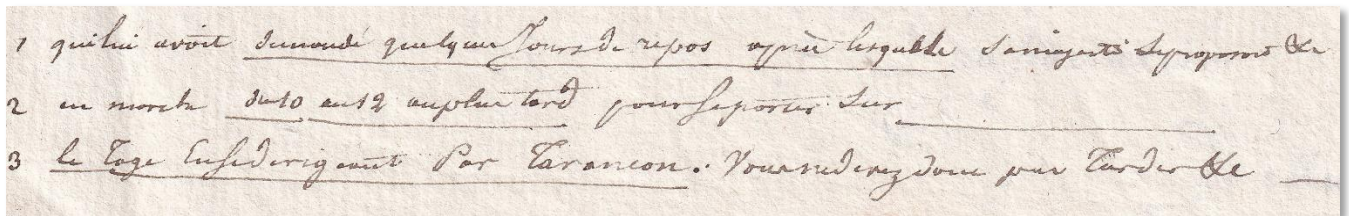 1 quilui avoit demandé quelques Jours de repos apres lesquels Sa majesté Se propose &e
2 en marche du 10 au 12 au plus tard pour Se porter Sur
3 le Tage En Se dirigeant Par Tarancon. Vous ne devez donc pas Tarder &e